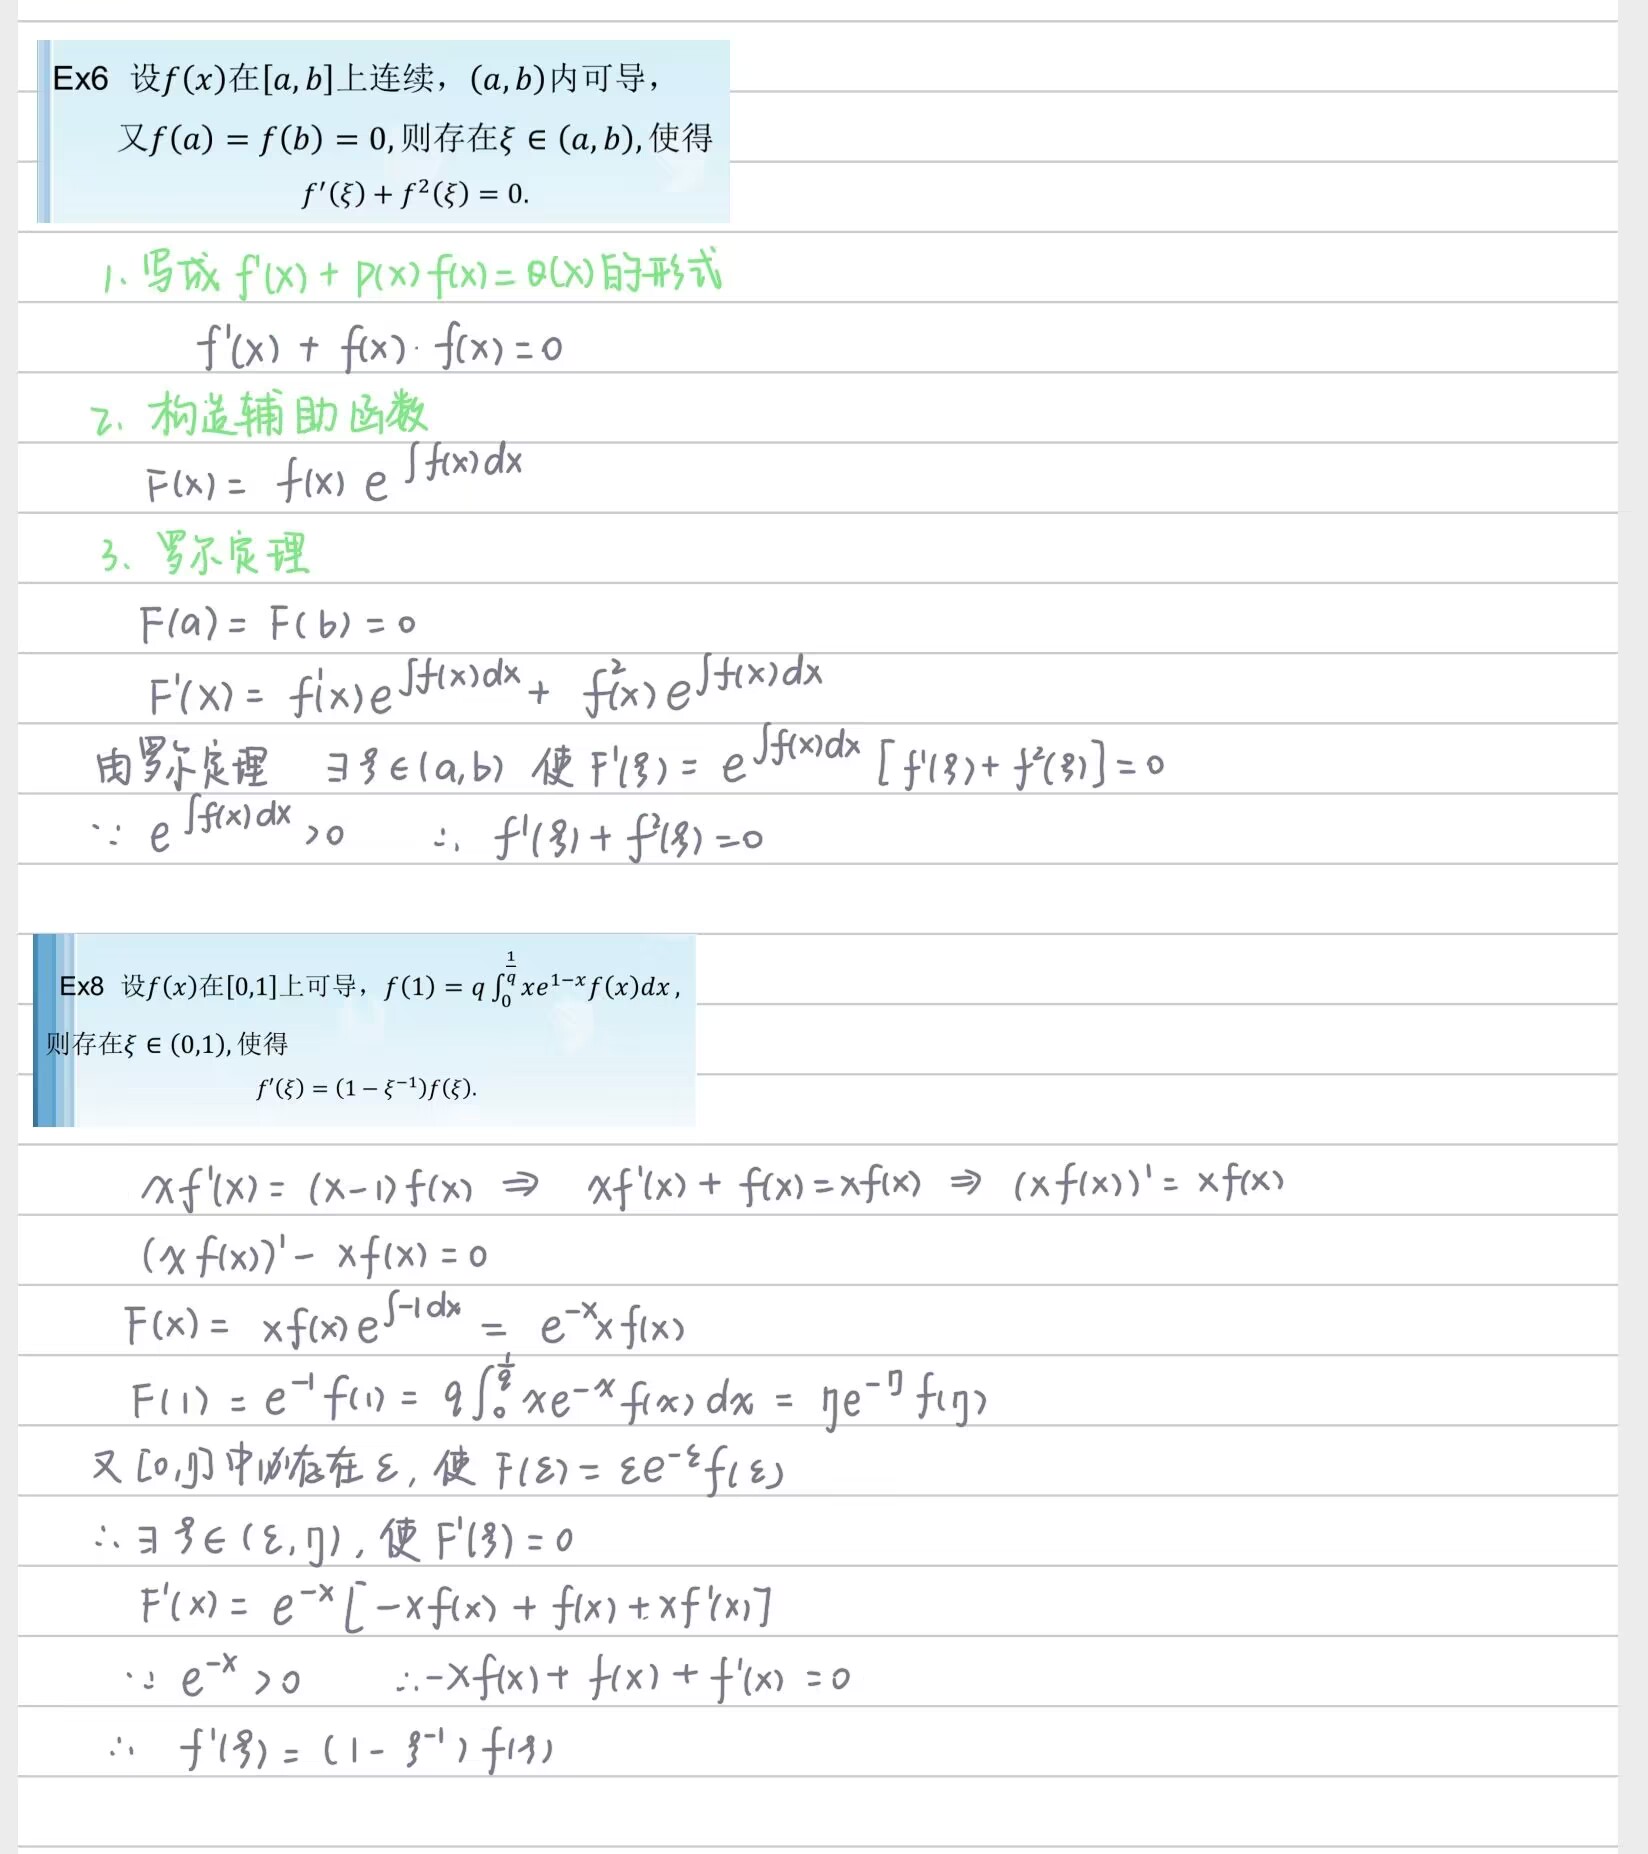 Ex6 设f(x)在[a,b]上连续，(a,b)内可导，
又f(a) = f(b) = 0,则存在ξ ∈ (a,b),使得
f′(ξ) + f²(ξ) = 0.
1、写成 f'(x) + P(x) f(x) = Q(x) 的形式
f'(x) + f(x) · f(x) = 0
2、构造辅助函数
F(x) = f(x) e^{∫f(x)dx}
3、罗尔定理
F(a) = F(b) = 0
F'(x) = f'(x) e^{∫f(x)dx} + f²(x) e^{∫f(x)dx}
由罗尔定理 ∃ξ∈(a,b) 使 F'(ξ) = e^{∫f(x)dx} [f'(ξ) + f²(ξ)] = 0
∵ e^{∫f(x)dx} > 0 ∴ f'(ξ) + f²(ξ) = 0
Ex8 设f(x)在[0,1]上可导，f(1) = q ∫₀^{1/q} xe^{1−x}f(x)dx,
则存在ξ ∈ (0,1),使得
f′(ξ) = (1 − ξ⁻¹)f(ξ).
xf'(x) = (x-1)f(x) ⇒ xf'(x) + f(x) = xf(x) ⇒ (xf(x))' = xf(x)
(xf(x))' - xf(x) = 0
F(x) = xf(x)e^{∫-1dx} = e^{-x}xf(x)
F(1) = e^{-1}f(1) = q∫₀^{1/q} xe^{-x}f(x)dx = ηe^{-η}f(η)
又[0,η]中必存在ε, 使 F(ε) = εe^{-ε}f(ε)
∴ ∃ξ∈(ε,η), 使F'(ξ) = 0
F'(x) = e^{-x}[-xf(x) + f(x) + xf'(x)]
∵ e^{-x} > 0 ∴ -xf(x) + f(x) + f'(x) = 0
∴ f'(ξ) = (1 - ξ^{-1}) f(ξ)